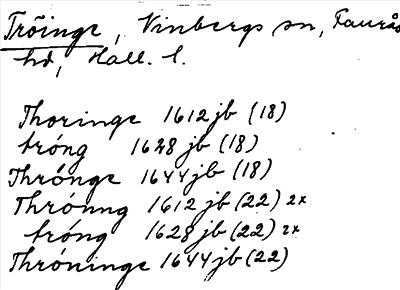 Tröinge, Vinbergs sn, Faurås
hd, Hall. l.
Thoringe 1612 jb (18)
tróng 1628 jb (18)
Thrónge 1644 jb (18)
Thrónng 1612 jb (22) 2x
tróng 1628 jb (22) 2x
Thróninge 1644 jb (22)